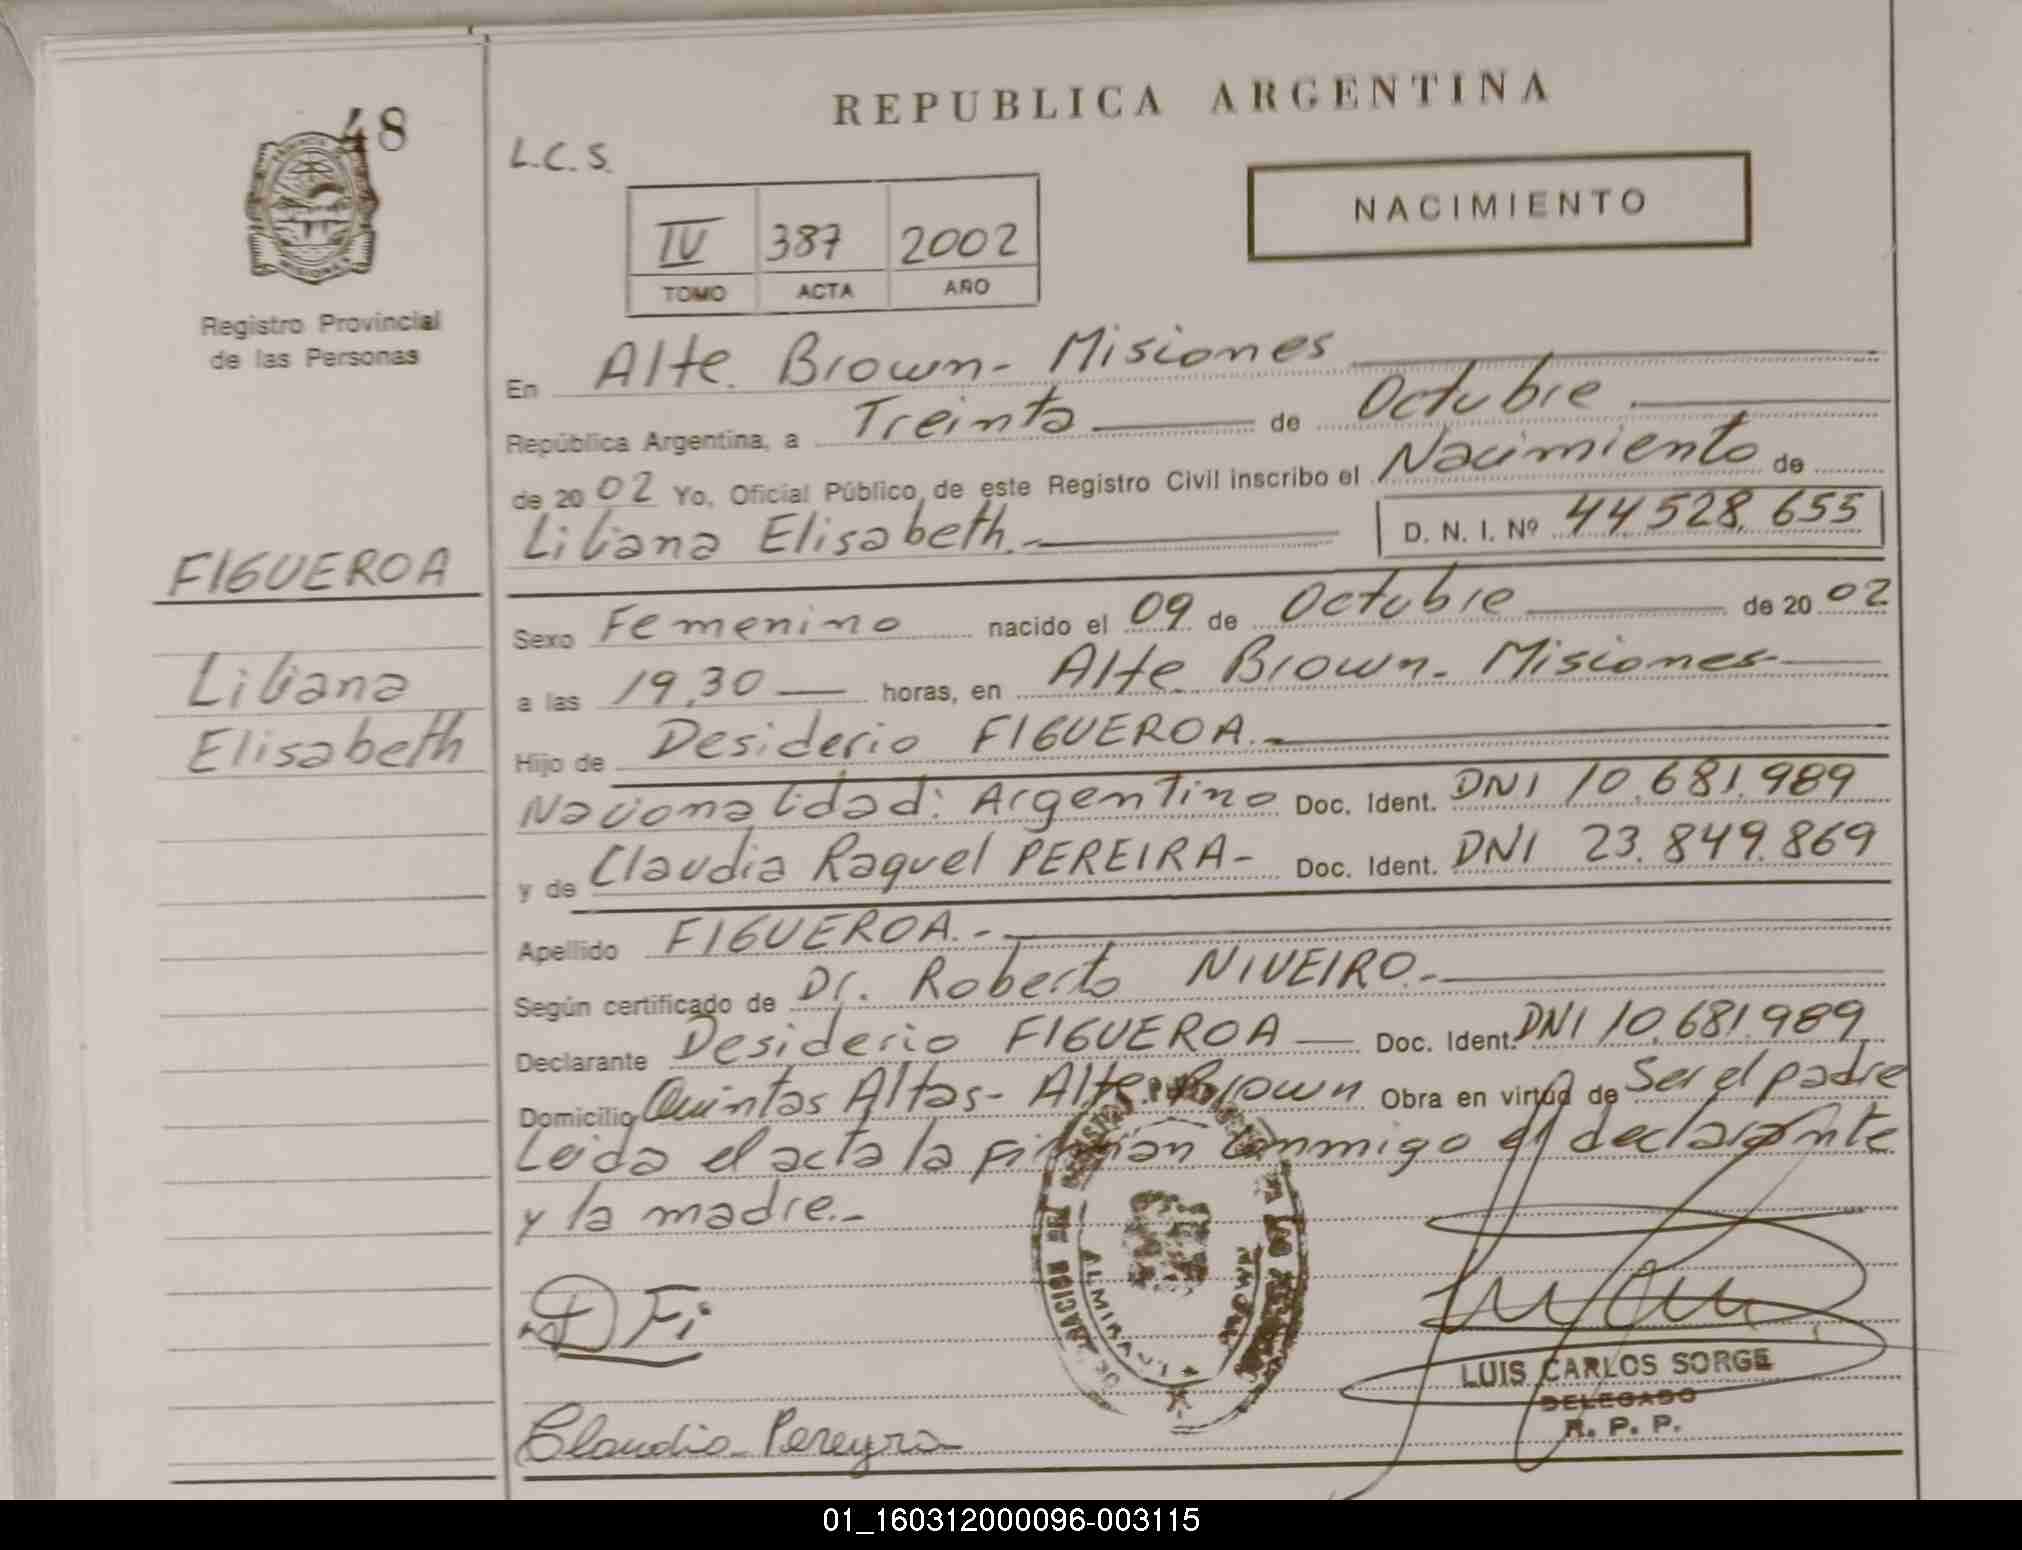 REPUBLICA ARGENTINA
48
MISIONES
Registro Provincial
de las Personas
FIGUEROA
Liliana
Elisabeth
L.C.S.
IV 387 2002
TOMO ACTA AÑO
NACIMIENTO
En Alte. Brown - Misiones
República Argentina, a Treinta de Octubre
de 2002 Yo, Oficial Público, de este Registro Civil inscribo el Nacimiento de
Liliana Elisabeth.- D. N. I. Nº 44.528.655
Sexo Femenino nacido el 09 de Octubre de 2002
a las 19,30 horas, en Alte Brown - Misiones
Hijo de Desiderio FIGUEROA.-
Nacionalidad: Argentino Doc. Ident. DNI 10.681.989
y de Claudia Raquel PEREIRA- Doc. Ident. DNI 23.849.869
Apellido FIGUEROA.-
Según certificado de Dr. Roberto NIVEIRO.-
Declarante Desiderio FIGUEROA Doc. Ident. DNI 10.681.989
Domicilio Quintas Altas - Alte. Brown Obra en virtud de Ser el padre
Leida el acta la firman conmigo el declarante
y la madre.-
D Fi
Claudia Pereyra
LUIS CARLOS SORGE
DELEGADO
R. P. P.
01_160312000096-003115